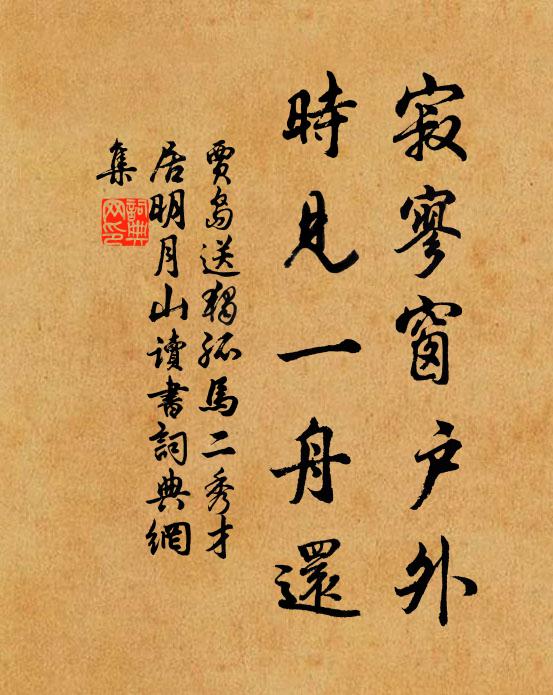 寂寥窗户外
時見一舟還
賈島送獨孤馬二秀才
居明月山讀書詞典網
集
詞典網印